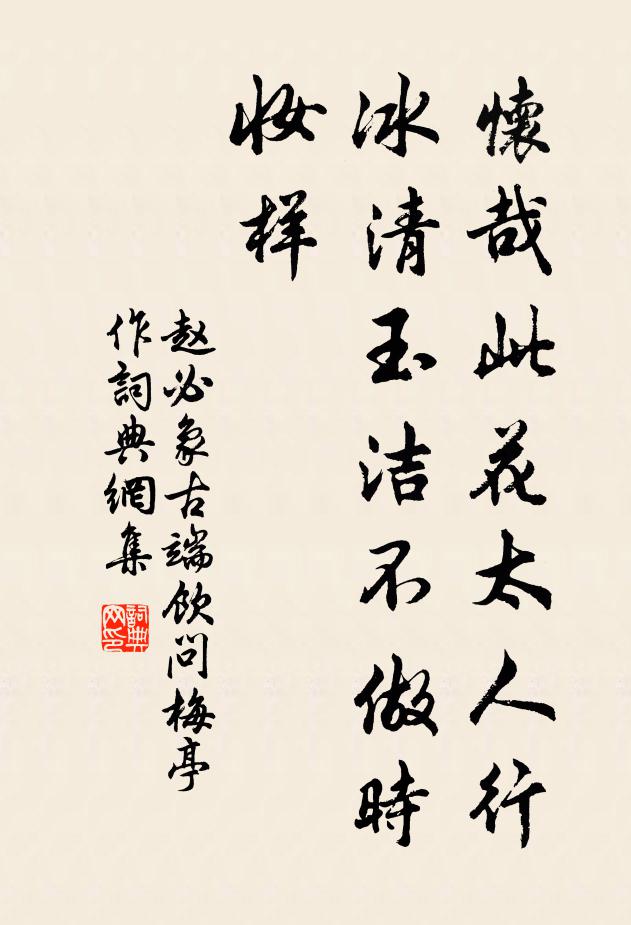 懷哉此花太人行
冰清玉洁不做時
妝样
赵必象古端飲问梅亭
作詞典網集
詞典网印